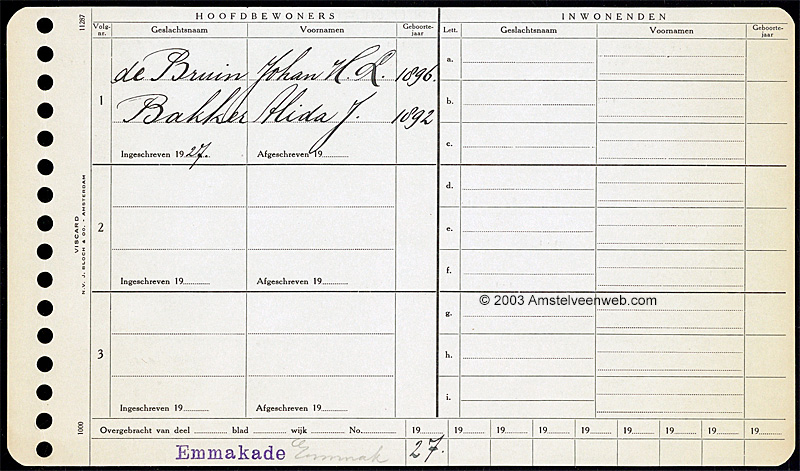 HOOFDBEWONERS
INWONENDEN
11287
Volg-nr.
Geslachtsnaam
Voornamen
Geboorte-jaar
Lett.
Geslachtsnaam
Voornamen
Geboorte-jaar
1
de Bruin Johan H. L. 1896.
Bakker Alida J. 1892
Ingeschreven 1927.
Afgeschreven 19
a.
b.
c.
2
Ingeschreven 19
Afgeschreven 19
d.
e.
f.
VISCARD
N.V. J. BLOCH & CO. - AMSTERDAM
3
Ingeschreven 19
Afgeschreven 19
© 2003 Amstelveenweb.com
g.
h.
i.
1000
Overgebracht van deel blad wijk No. 19 19 19 19 19 19 19 19 19
Emmakade Emmak 27.